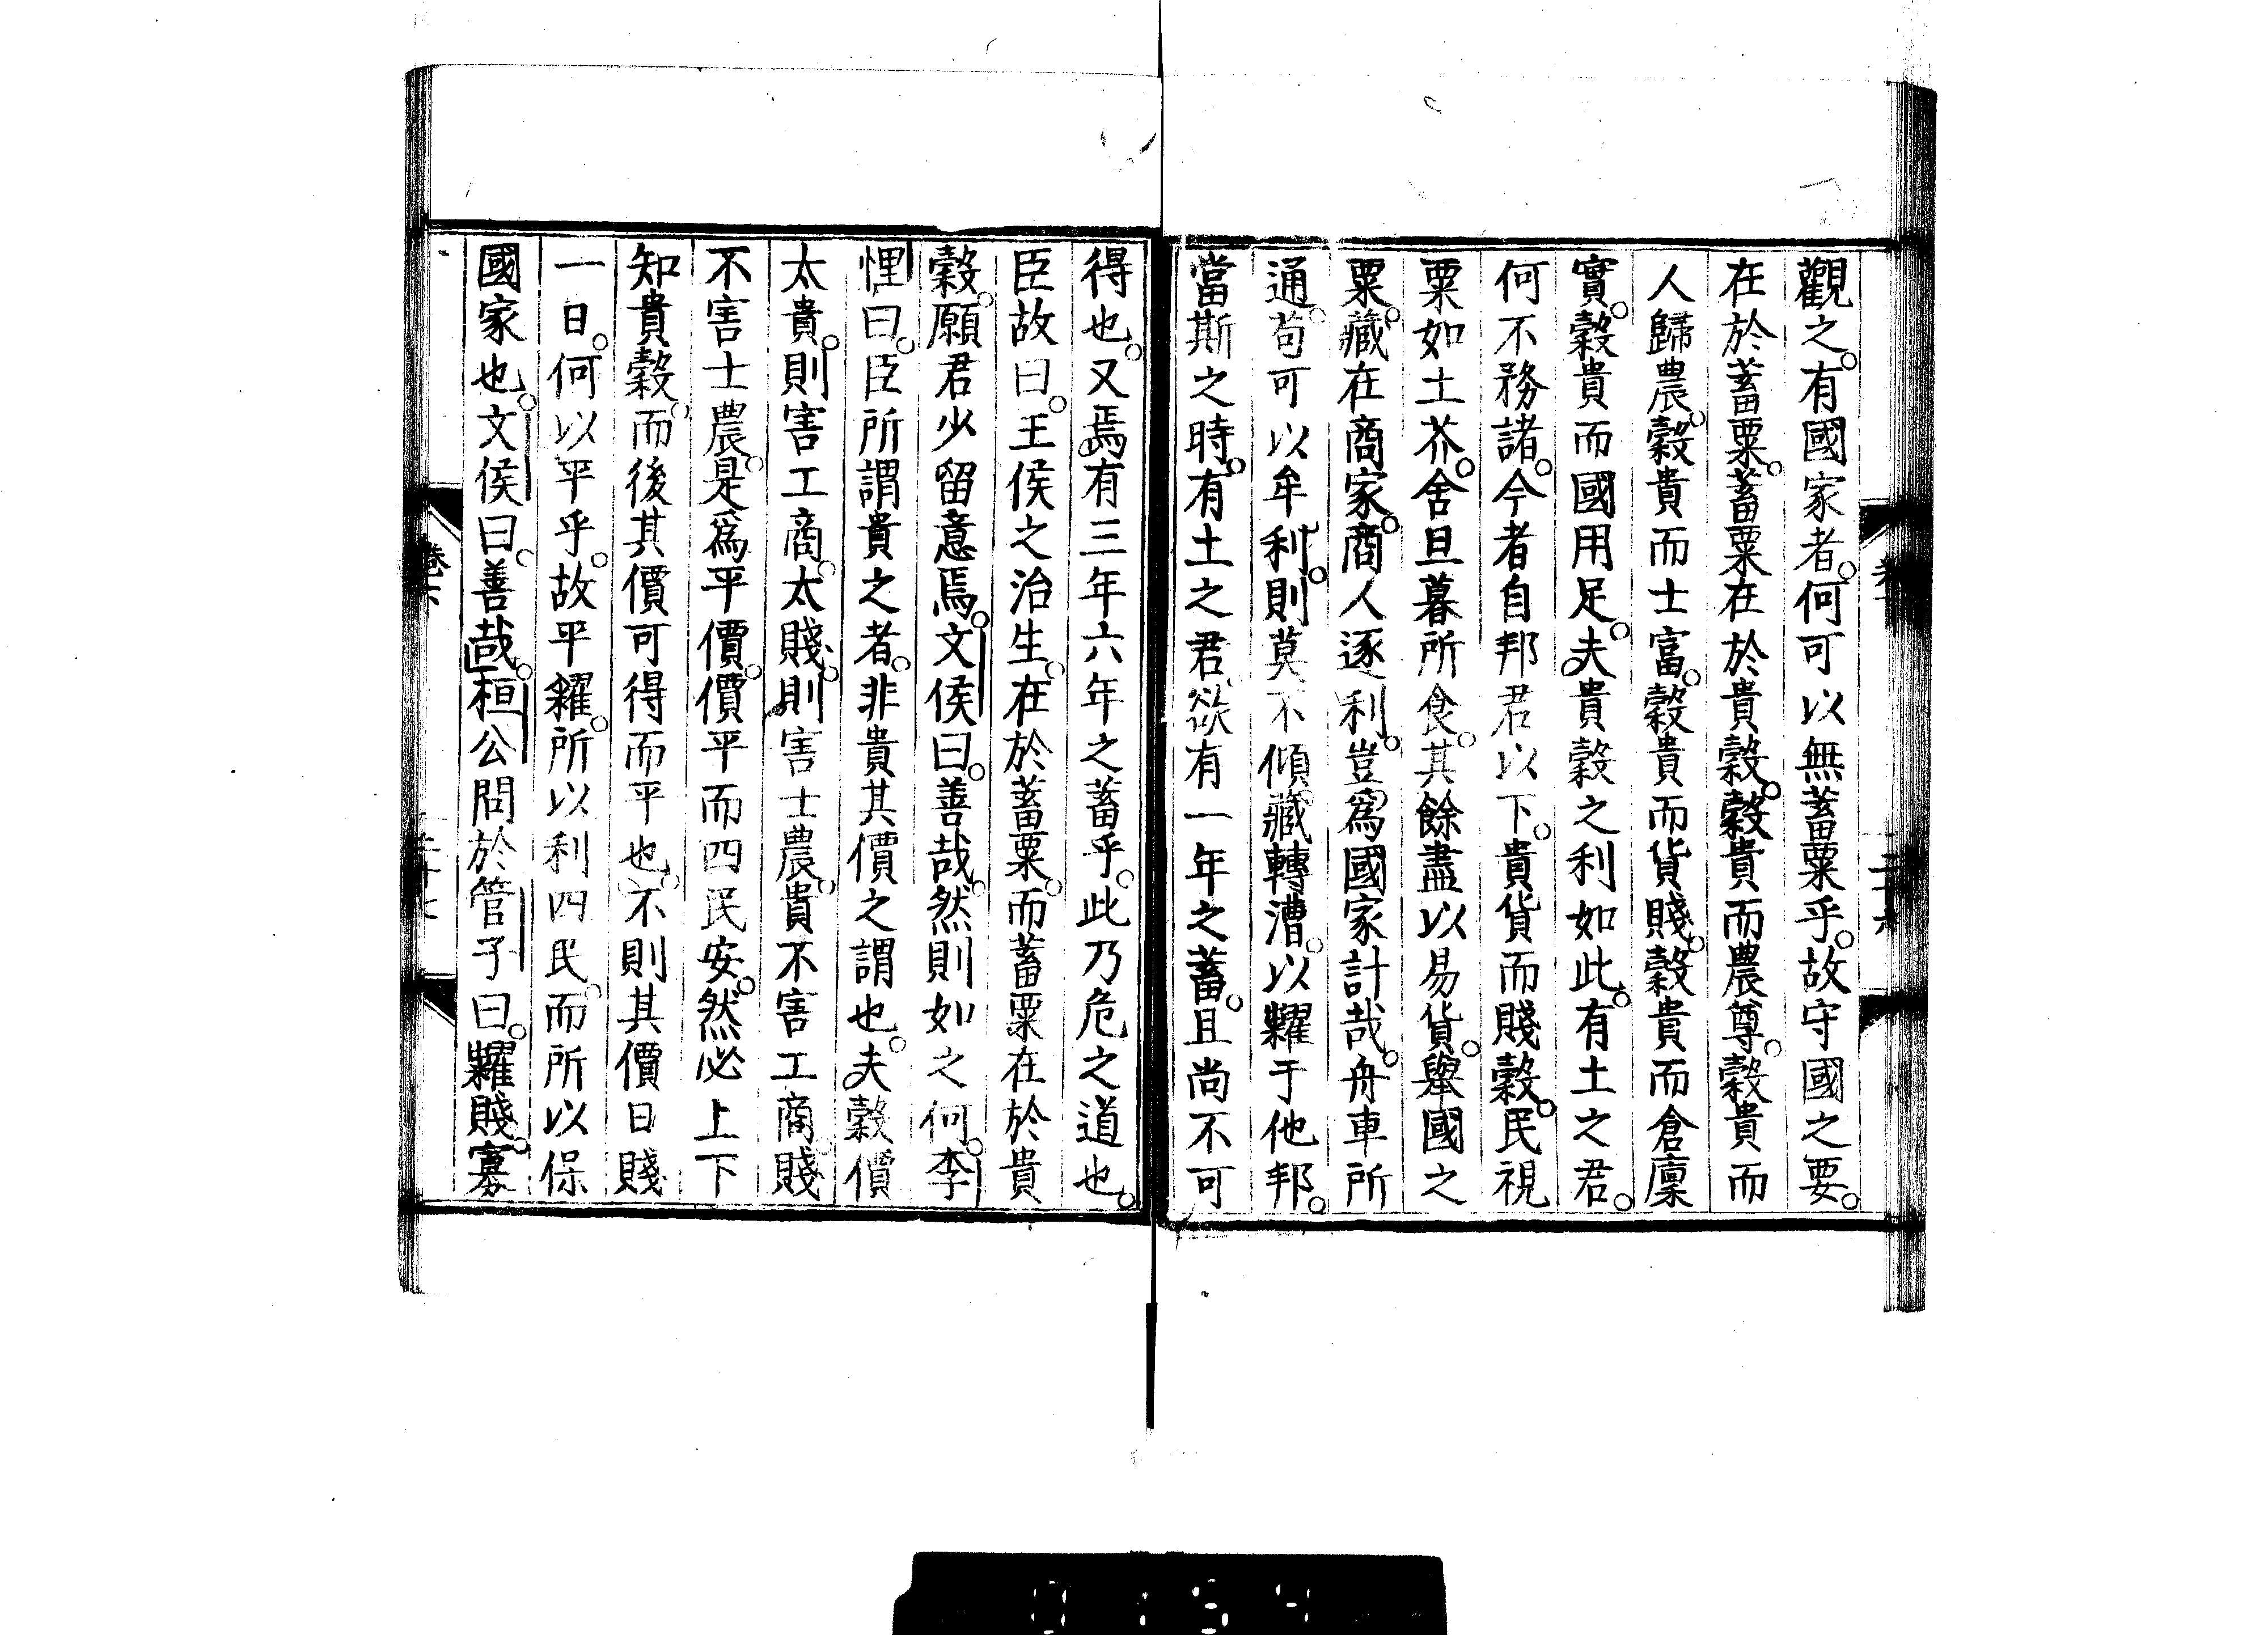 觀之。有國家者。何可以無蓄粟乎。故守國之要。
在於蓄粟。蓄粟在於貴穀。穀貴而農尊。穀貴而
人歸農。穀貴而士富。穀貴而貨賤。穀貴而倉廩
實。穀貴而國用足。夫貴穀之利如此。有土之君。
何不務諸。今者自邦君以下。貴貨而賤穀。民視
粟如土芥。舍旦暮所食。其餘盡以易貨。舉國之
粟。藏在商家。商人逐利。豈爲國家計哉。舟車所
通。苟可以牟利。則莫不傾藏轉漕。以糶于他邦。
當斯之時。有土之君。欲有一年之蓄。且尚不可
得也。又焉有三年六年之蓄乎。此乃危之道也。
臣故曰。王侯之治生。在於蓄粟。而蓄粟在於貴
穀。願君少留意焉。文侯曰。善哉。然則如之何。李
悝曰。臣所謂貴之者。非貴其價之謂也。夫穀價
太貴。則害工商。太賤。則害士農。貴不害工商。賤
不害士農。是爲平價。價平而四民安。然必上下
知貴穀。而後其價可得而平也。不則其價日賤
一日。何以平乎。故平糴。所以利四民。而所以保
國家也。文侯曰。善哉。桓公問於管子曰。糶賤。寡